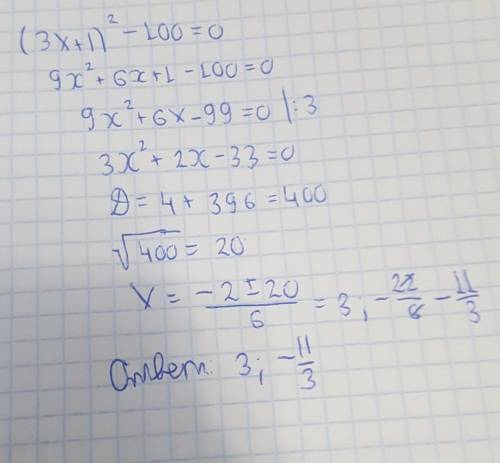 (3x+1)² - 100 = 0
9x² + 6x + 1 - 100 = 0
9x² + 6x - 99 = 0 |:3
3x² + 2x - 33 = 0
D = 4 + 396 = 400
√400 = 20
X = (-2 ± 20)/6 = 3; -22/6 - 11/3
Ответ: 3; -11/3